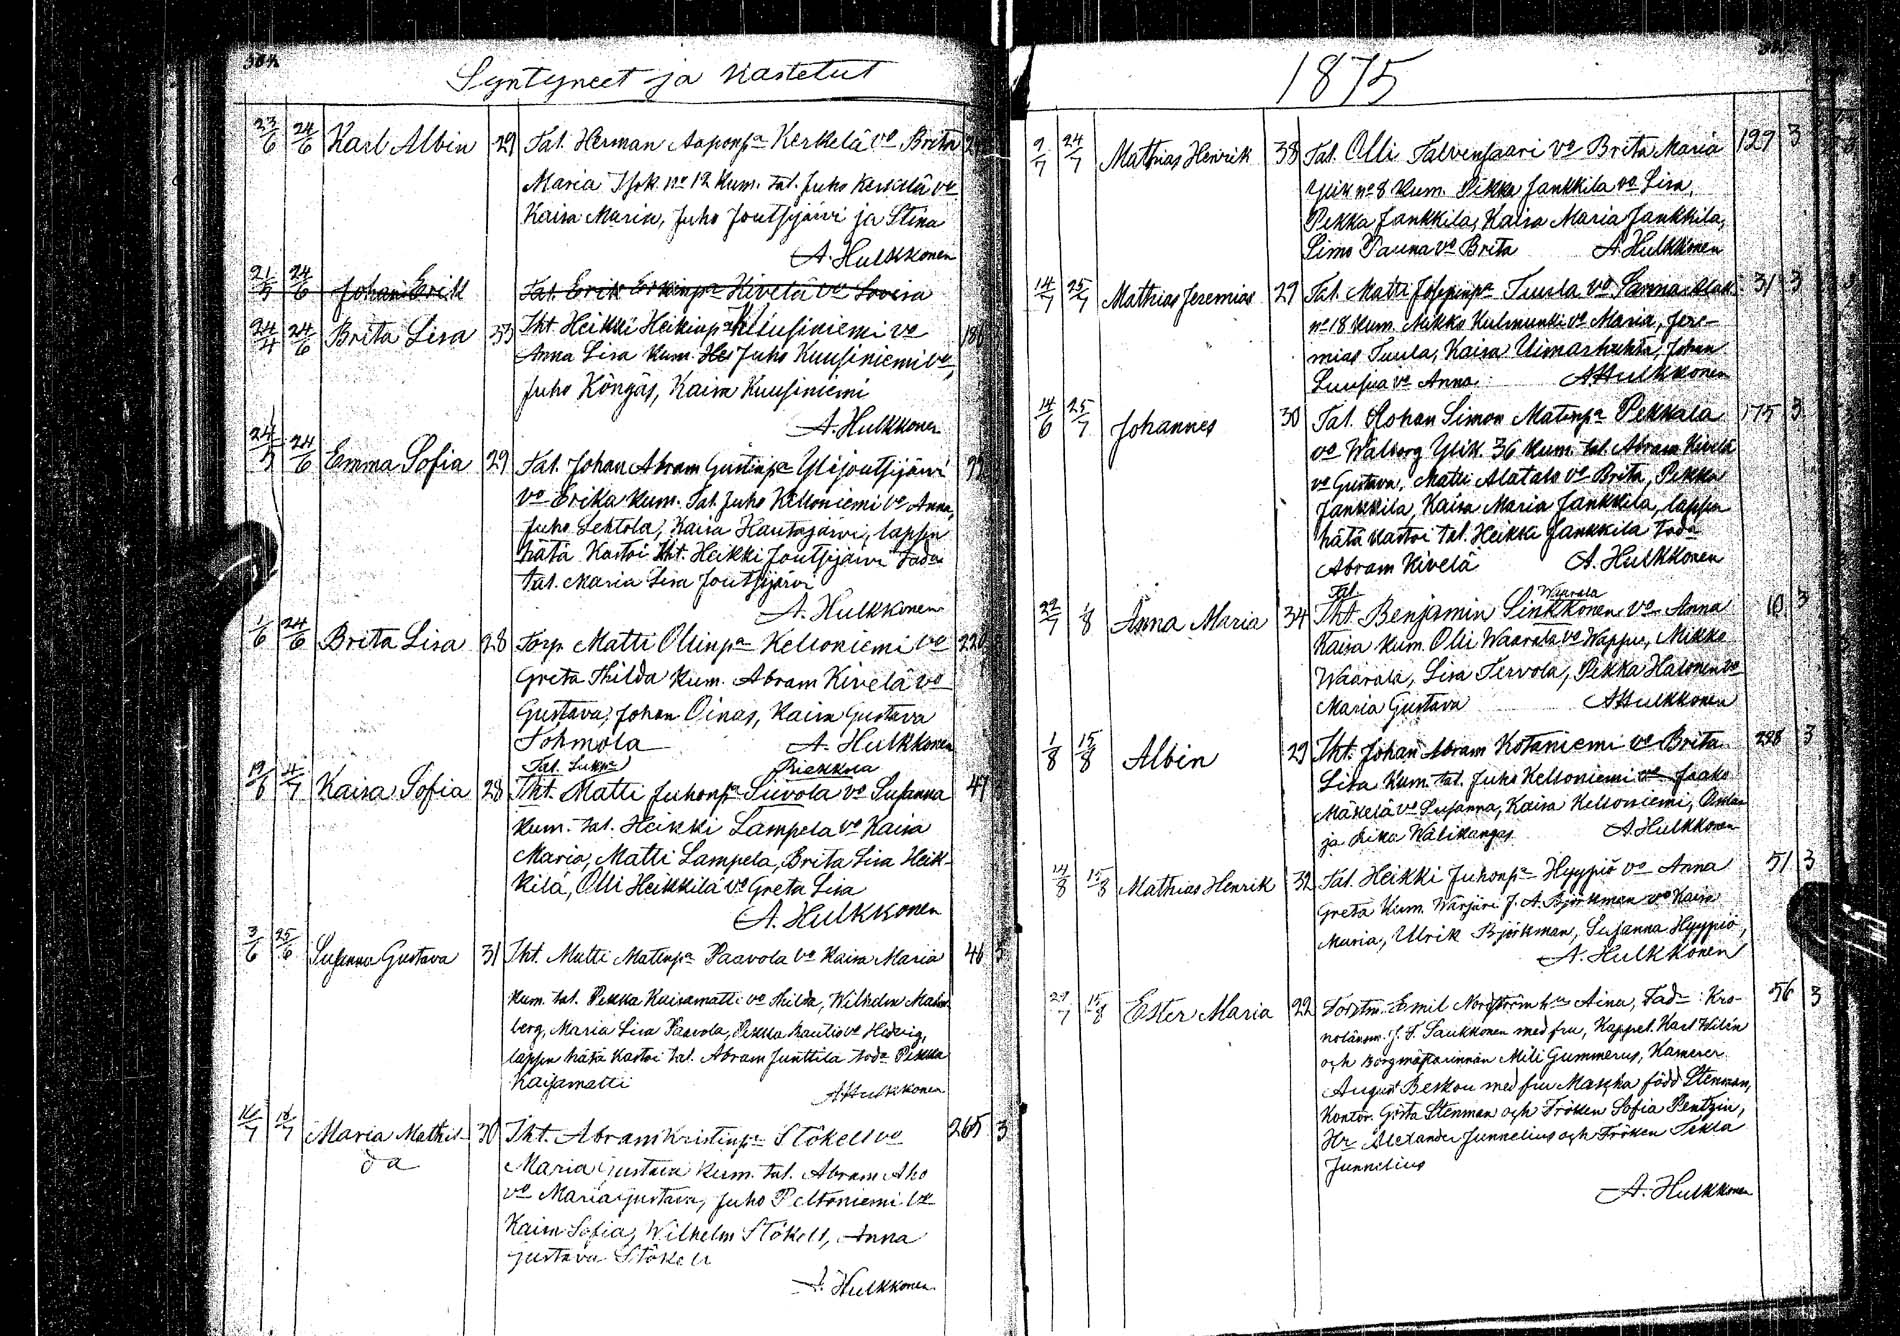 Syntyneet ja Kastetut
23/6 24/6 Karl Albin 29 Tal. Herman Aaponp:a Kerkelä vo Brita
Maria Isok. no 12 Kum. tal. Juho Kerkelä vo
Kaisa Maria, Juho Joutsijärvi ja Stina
A. Hulkkonen
21/5 24/6 Johan Erik Tal. Erik Erkinp:a Kivelä vo Lovisa
24/4 24/6 Brita Lisa 33 Tht. Heikki Heikinp:a Kuusiniemi vo
Anna Lisa Kum. Juho Kuusiniemi vo,
Juho Köngäs, Kaisa Kuusiniemi
A. Hulkkonen
24/5 24/6 Emma Sofia 29 Tal. Johan Abram Gustinp:a Ylijoutsijärvi
vo Erika Kum. Tal. Juho Kelloniemi vo Anna,
Juho Lehtola, Kaisa Hautajärvi, lapsen
hätä Kastoi tht. Heikki Joutsijärvi Tod:a
tal. Maria Lisa Joutsijärvi
A. Hulkkonen
1/6 24/6 Brita Lisa 28 Torp. Matti Ollinp:a Kelloniemi vo 220
Greta Thilda Kum. Abram Kivelä vo
Gustava, Johan Oinas, Kaisa Gustava
Sohmola A. Hulkkonen
Tal. Piekkola
19/6 4/7 Kaisa Sofia 28 Tht. Matti Juhonp:a Siivola vo Susanna 47
Kum. tal. Heikki Lampela vo Kaisa
Maria, Matti Lampela, Brita Lisa Heik-
kilä, Olli Heikkilä vo Greta Lisa
A. Hulkkonen
3/6 25/6 Susanna Gustava 31 Tht. Matti Matinp:a Paavola vo Kaisa Maria 46 3
Kum. tal. Pekka Kaisamatti vo Thilda, Wilhelm Malm-
berg, Maria Lisa Paavola, Pekka Rautio vo Hedvig,
lapsen hätä Kastoi tal. Abram Junttila tod:a Pekka
Kaisamatti A Hulkkonen
11/7 18/7 Maria Mathil- 30 Tht. Abram Kristinp:a Stökell vo 265 3
da Maria Gustava Kum. tal. Abram Aho
vo Maria Gustava, Juho Peltoniemi vo
Kaisa Sofia, Wilhelm Stökell, Anna
Gustava Stökell
A. Hulkkonen
1875
9/7 24/7 Mathias Henrik 38 Tal. Olli Talvensaari vo Brita Maria 127 3
Ylik no 8 Kum. Pikka Jankkila vo Lisa,
Pekka Jankkila, Kaisa Maria Jankkila,
Simo Pauna vo Brita A. Hulkkonen
14/7 25/7 Mathias Jeremias 29 Tal. Matti Josepinp:a Tuula vo Sanna Alak. 31 3
no 18 Kum. Mikko Kulmunki vo Maria, Jere-
mias Tuula, Kaisa Uimarhuhta, Johan
Luusua vo Anna. A Hulkkonen
14/6 25/7 Johannes 30 Tal. Johan Simon Matinp:a Pekkala 175 3
vo Walborg Ylik. 36 Kum. tal. Abram Kivelä
vo Gustava, Matti Alatalo vo Brita, Pekka
Jankkila, Kaisa Maria Jankkila, lapsen
hätä Kastoi tal. Heikki Jankkila tod:a
Abram Kivelä A. Hulkkonen
Tal. Waarala
22/7 1/8 Anna Maria 34 Tht. Benjamin Sinkkonen vo Anna 10 3
Kaisa Kum. Olli Waarala vo Wappu, Mikko
Waarala, Lisa Tervola, Pekka Halonen vo
Maria Gustava A Hulkkonen
1/8 15/8 Albin 29 Tht. Johan Abram Kotaniemi vo Brita 228 3
Lisa. Kum. tal. Juho Kelloniemi vo Jaako
Mäkelä vo Susanna, Kaisa Kelloniemi,
ja Wälikangas A. Hulkkonen
14/8 15/8 Mathias Henrik 32 Tal. Heikki Juhonp:a Hyypiö vo Anna 51 3
Greta Kum. Wärjäri J. A. Björkman vo Kaisa
Maria, Ulrik Björkman, Susanna Hyypiö,
A. Hulkkonen
29/7 15/8 Ester Maria 22 Forstm. Emil Nordström h:u Aina, Fad:r: Kro- 56 3
nolänsm. J. F. Saukkonen med fru, Kappel. Karl Helén
och Borgmästarinnan Mili Gummerus, Kamerer
August Beskou med fru Mascha född Stenman,
Kontor. Gösta Stenman och Fröken Sofia Pentzin,
Hr Alexander Junnelius och Fröken Tekla
Junnelius
A. Hulkkonen